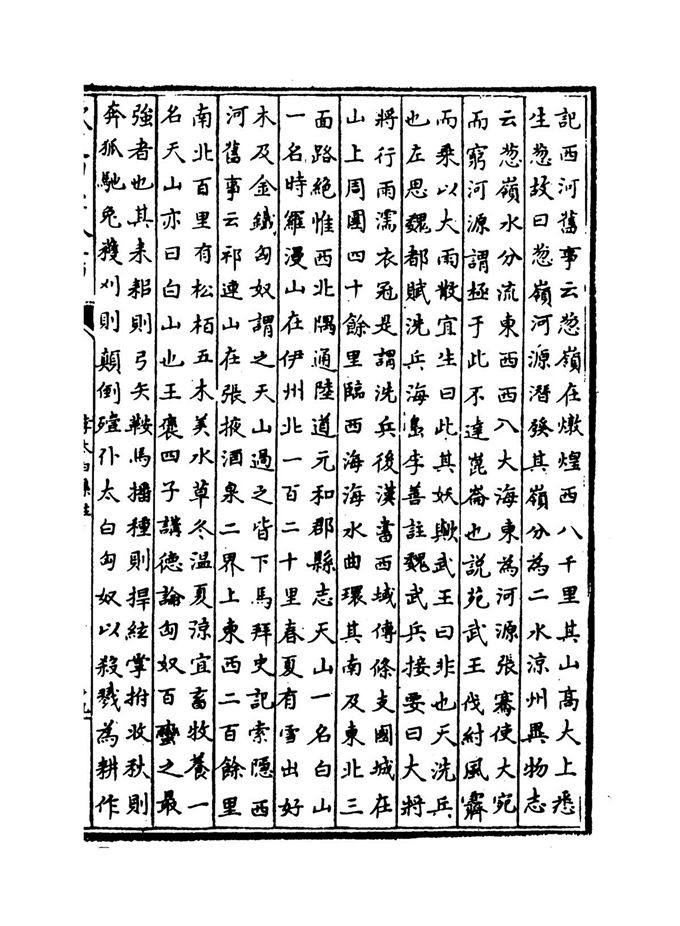 記西河舊事云葱嶺在燉煌西八千里其山髙大上悉
生葱故曰葱嶺河源潛發其嶺分為二水涼州異物志
云葱嶺水分流東西西入大海東為河源張騫使大宛
而窮河源謂極于此不達崑崙也説苑武王伐紂風霽
而乘以大雨散宜生曰此其妖歟武王曰非也天洗兵
也左思魏都賦洗兵海島李善註魏武兵接要曰大將
將行雨濡衣冠是謂洗兵後漢書西域傳條支國城在
山上周圍四十餘里臨西海海水曲環其南及東北三
面路絶惟西北隅通陸道元和郡縣志天山一名白山
一名時羅漫山在伊州北一百二十里春夏有雪出好
木及金鐵匈奴謂之天山過之皆下馬拜史記索隱西
河舊事云祁連山在張掖酒泉二界上東西二百餘里
南北百里有松栢五木美水草冬温夏涼宜畜牧養一
名天山亦曰白山也王襃四子講德論匈奴百蠻之最
強者也其耒耜則弓矢鞍馬播種則捍絃掌拊收秋則
奔狐馳兔穫刈則顛倒殪仆太白匈奴以殺戮為耕作
李太白集註